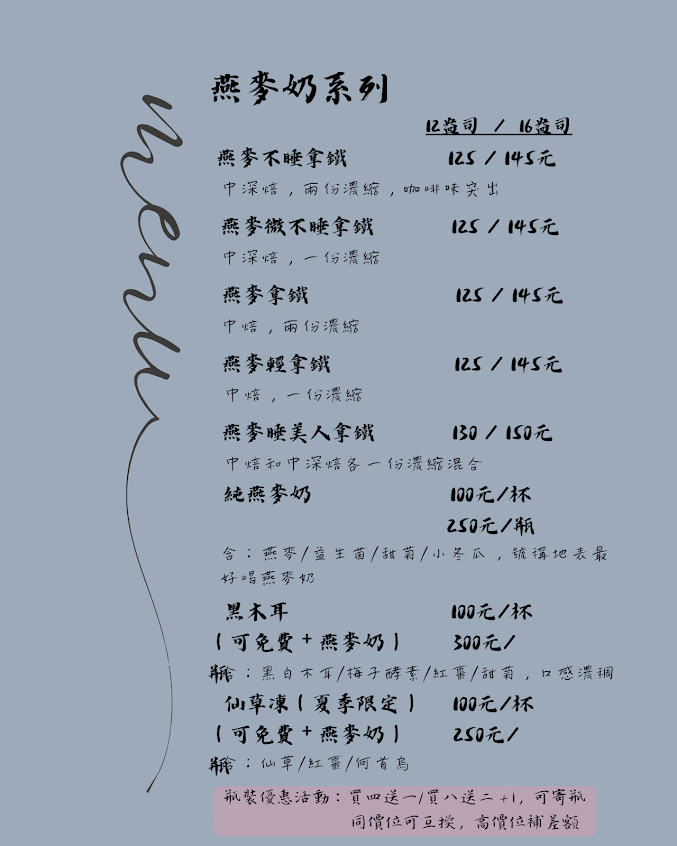 menu
燕麥奶系列
12盎司 / 16盎司
燕麥不睡拿鐵 125 / 145元
中深焙，兩份濃縮，咖啡味突出
燕麥微不睡拿鐵 125 / 145元
中深焙，一份濃縮
燕麥拿鐵 125 / 145元
中焙，兩份濃縮
燕麥輕拿鐵 125 / 145元
中焙，一份濃縮
燕麥睡美人拿鐵 130 / 150元
中焙和中深焙各一份濃縮混合
純燕麥奶 100元/杯
250元/瓶
含：燕麥/益生菌/甜菊/小冬瓜，號稱地表最
好喝燕麥奶
黑木耳 100元/杯
(可免費+燕麥奶) 300元/
瓶
含：黑白木耳/梅子酵素/紅棗/甜菊，口感濃稠
仙草凍(夏季限定) 100元/杯
(可免費+燕麥奶) 250元/
瓶
含：仙草/紅棗/何首烏
瓶裝優惠活動：買四送一/買八送二+1，可寄瓶
同價位可互換，高價位補差額